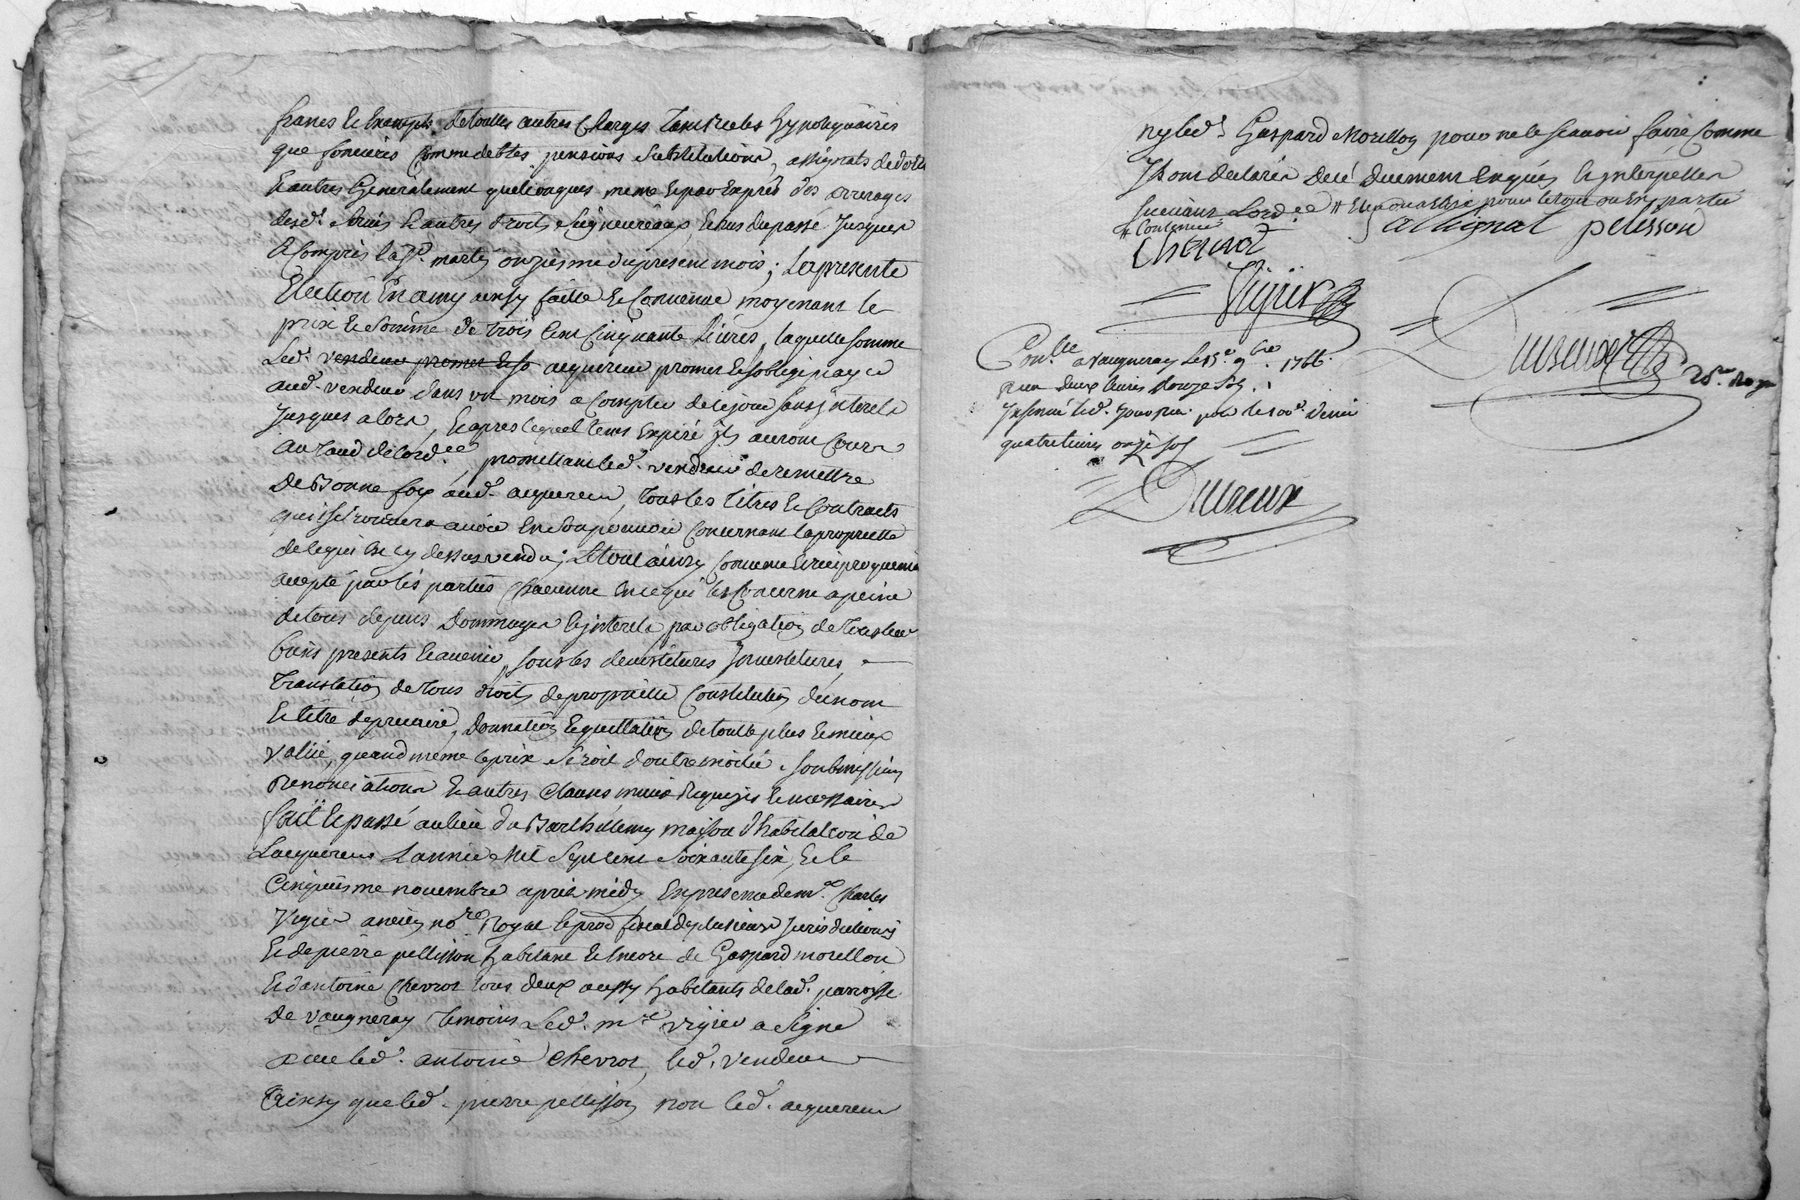 francs et exempts de toutes autres charges tant reelles hypotequaires
que foncieres comme debtes, pensions substitutions, assignats de dotte
et autres generalement quelconques, meme et par expres des arrerages
desd. servis et autres droits seigneuriaux, et dus du passé jusques
et compris la st. martin onzieme du present mois; la presente
Election en amy ainsy faitte et convenue moyenant le
prix et somme de trois cent cinquante livres, laquelle somme
led. vendeur promet et so acquereur promet et s'oblige payer
aud. vendeur dans un mois a compter de ce jour sans interets
jusques alors, et apres lequel tems expiré ils auront cours
au taud de l'ord.ce, promettant led. vendeur de remettre
de Bonne foy aud. acquereur, tous les titres et contracts
qu'il se trouvera avoir en son pouvoir concernant la proprietté
de ce qui est cy dessus vendu; Le tout ainsy convenu et reciproquement
accepté par les parties chacune en ce qui les concerne a peine
de tous depens dommages et interets par obligation de tous leurs
biens presents et avenir, sous les devestitures investitures,
translation de tous droits de proprietté constitution de nom
et titre de precaire, donnation et quittation de toutte plus et mieux
value, quand même le prix seroit d'outremoitié. soubmissions
Renonciations et autres clauses mieux requises et necessaires
fait et passé au lieu du Barthélemy maison d'habitation de
L'acquereur L'année mil sept cent soixante six, et le
cinquième novembre après midy en presence de m.e charles
Vigier ancien no.re Royal et pro.r fiscal de plusieurs jurisdictions
et de pierre pellisson habitant et encore de Gaspard morellon
et d'antoine chevrot tous deux aussy habitants de lad. parroisse
de vaugneray temoins Led. m.re vigier a signé
avec led. antoine chevrot, led. vendeur
Ainsy que led. pierre pellisson non led. acquereur
ny led. Gaspard Morellon pour ne le scavoir faire comme
Ils ont declaré de ce duement enquis et interpellés
suivant L'ord.ce # et ou n'a été pour le tout ou en partie
# contenu
chevrot
allignat pelisson
Vigier
Dureux
Con.lle a vaugneray le 15.e 9bre 1766.
reçu deux livres douze sols.
Insinué led. jour reçu pour le 100.e denier
quatre livres onze sols
Dureux